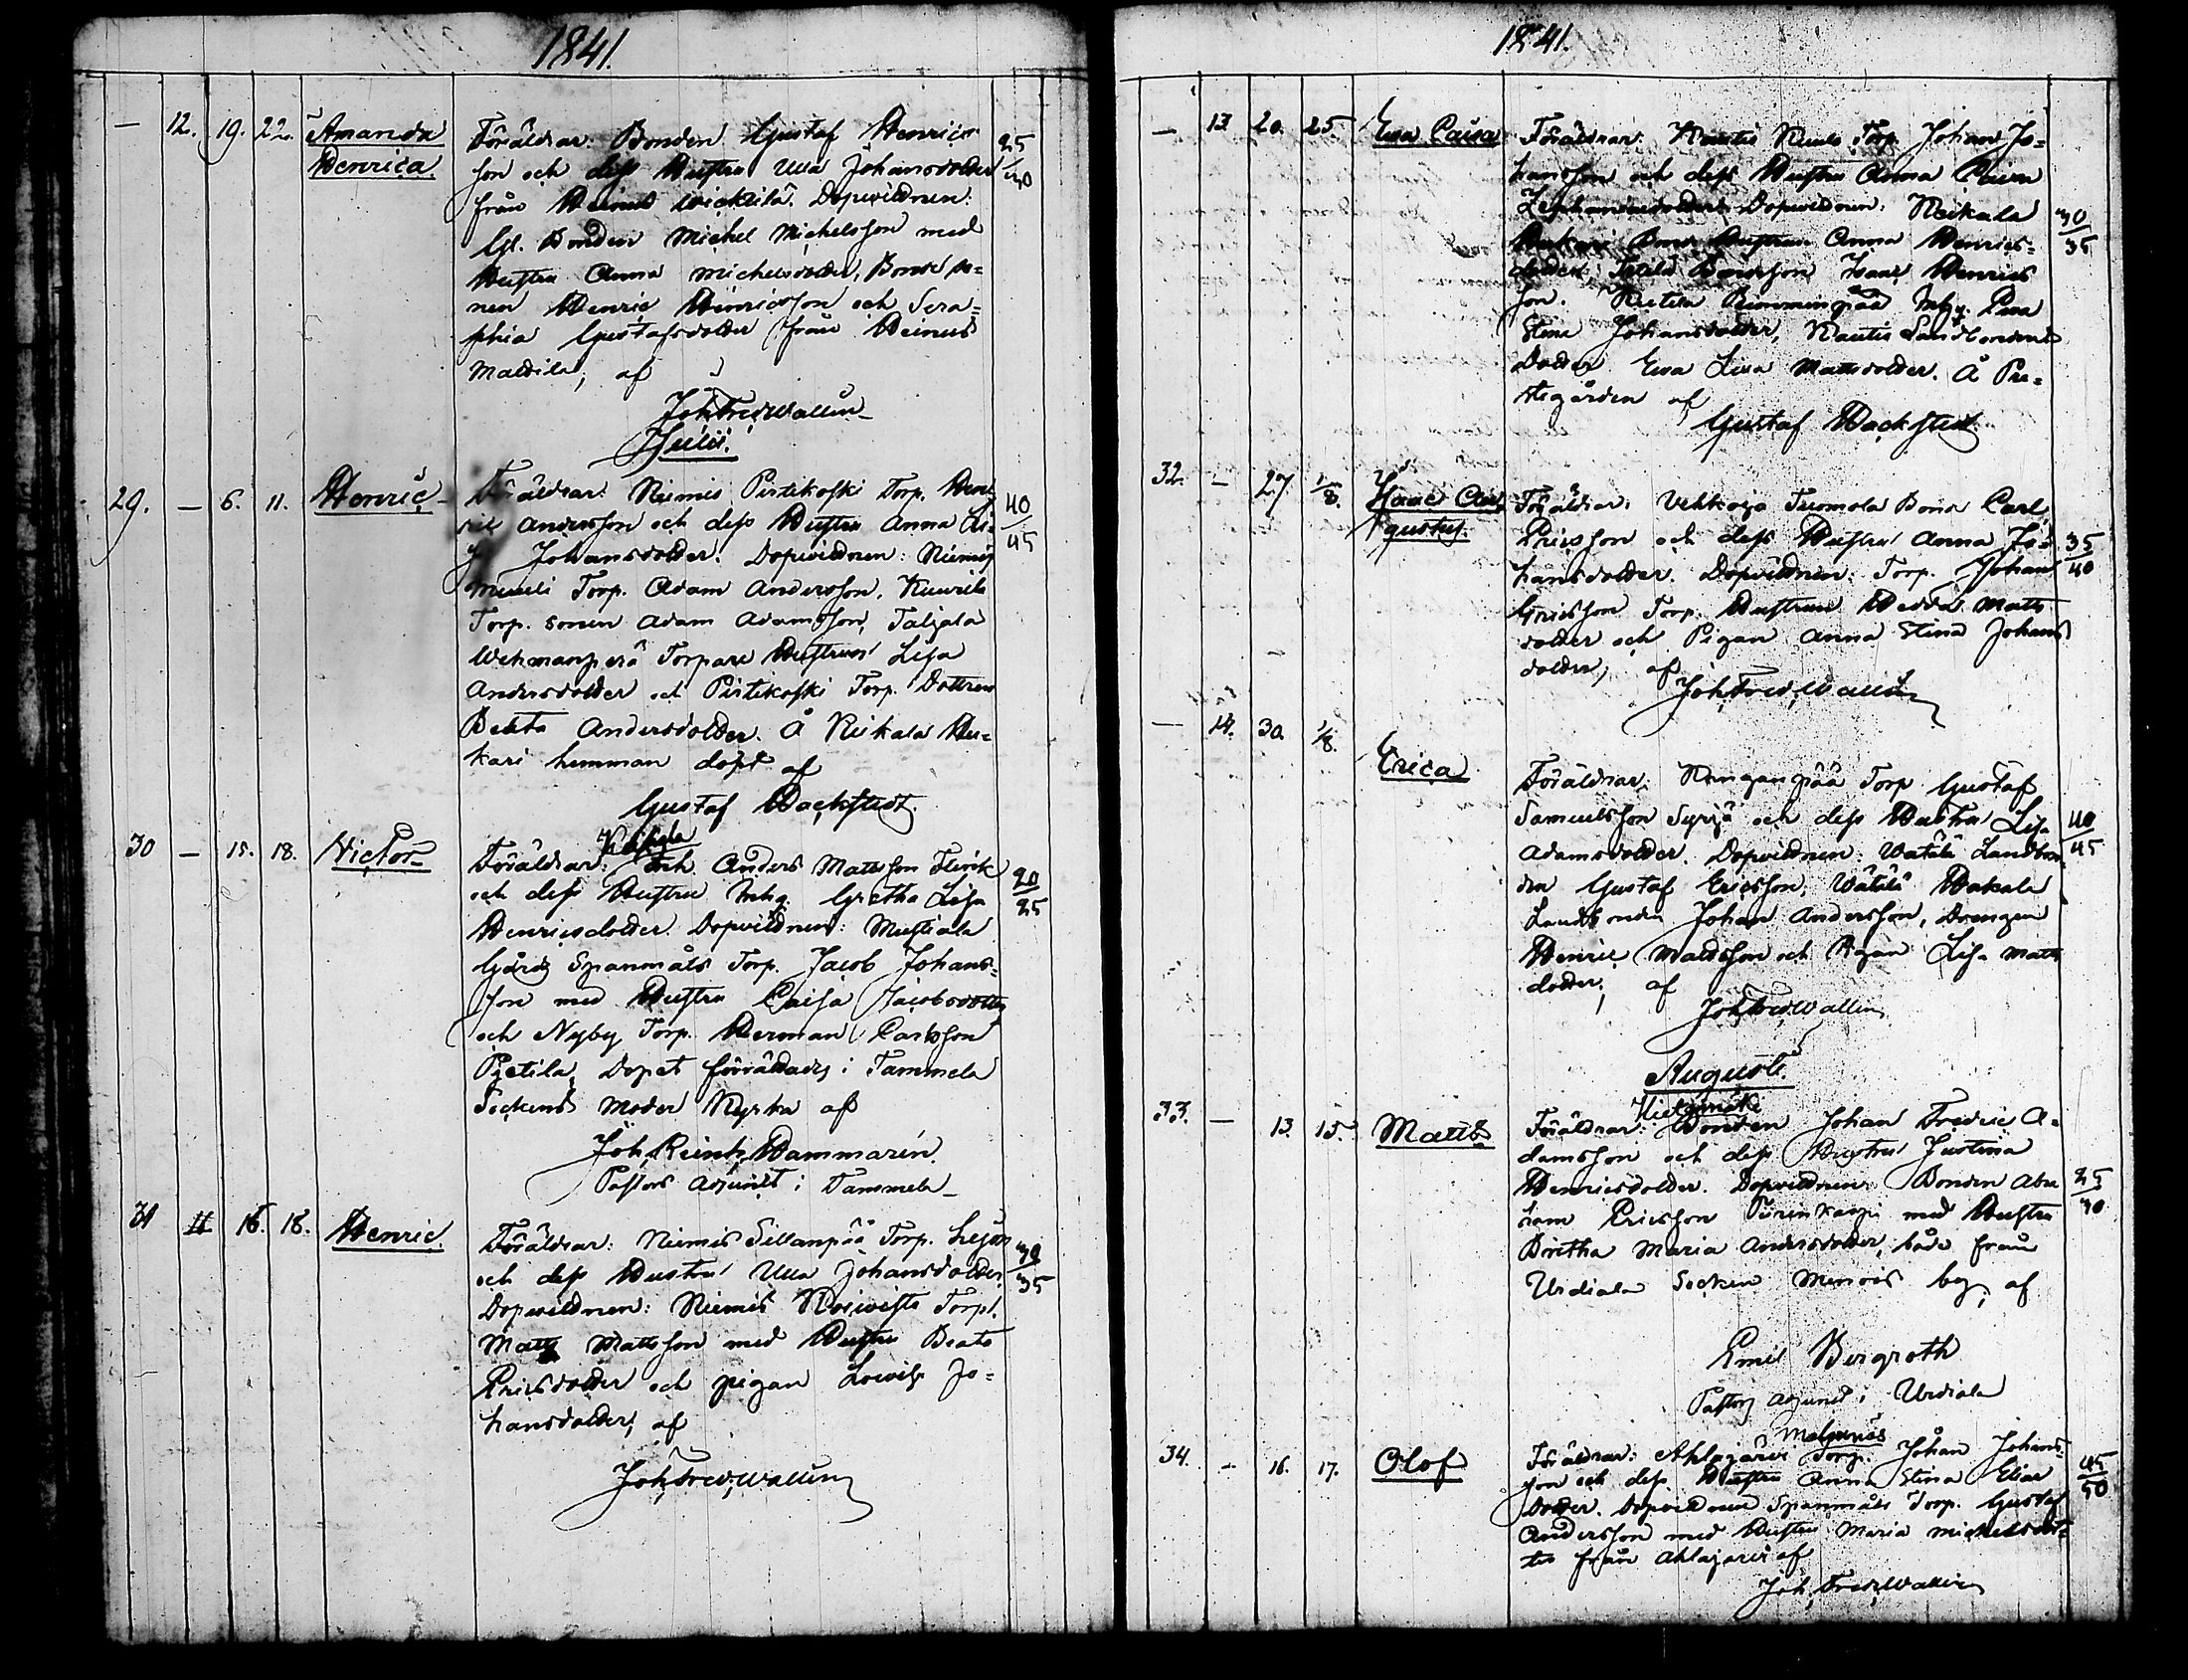 1841.
— 12. 19. 22. Amanda
Henrica.
Föräldrar: Bonden Gustaf Henrics
son och dess Hustru Ulla Johansdotter
25/30
från Heinus Dopvittnen:
Gl. Bonden Michel Michelsson med
Hustru Anna Michelsdotter, Bonde so=
nen Henric Henricsson och Sera=
phia Gustafsdotter från Heinus
Maldila; af
Joh. Fred. Wallin
Julii.
29. — 6. 11. Henric
Föräldrar: Niemis Pirtikoski Torp. Hen
ric Andersson och dess Hustru Anna
40/45
Johansdotter. Dopvittnen: Niemis
Torp. Adam Andersson,
Torp. sonen Adam Adamsson, Taljala
Wehmanperä Torpare Hustrun Lisa
Andersdotter och Pirtikoski Torp. Dottren
Beata Andersdotter. Å Kuikala Heu=
kari hemman döpt af
Gustaf Hackstedt.
30 — 15. 18. Victor
Föräldrar: Anders Mattsson Flink
och dess Hustru Inhg. Gretha Lisa
20/25
Henricsdotter. Dopvittnen: Mustiala
Gårds Spanmåls Torp. Jacob Johans=
son med Hustru Caisa Jacobsdotter
och Nyby Torp. Herman Carlsson
Pietilä, Dopet förrättades i Tammela
Sockens Moder Kyrka af
Joh. Reinh. Hammarén.
Pastors Adjunct i Tammela
31 11 16. 18. Henric.
Föräldrar: Niemis Sillanpää Torp.
och dess Hustru Ulla Johansdotter.
30/35
Dopvittnen: Niemis Koivisto Torp.
Matts Mattsson med Hustru Beata
Ericsdotter och pigan Lovisa Jo=
hansdotter; af
Joh. Fred. Wallin
1841.
— 13. 20. 25. Eva Caisa
Föräldrar: Kautis Torp. Johan Jo=
hansson och dess Hustru Anna Caisa
Dopvittnen: Kuikala
30/35
Bond. Hustrun Anna Henrics=
dotter, Bondeson Isaac Henrics
son. Inhg. Eva
Stina Johansdotter, Kautis Landbondens
Dotter Eva Lisa Mattsdotter. Å Pre=
stegården af
Gustaf Hackstedt.
32. — 27. 1/8. Isaac Carl
Gustaf.
Föräldrar: Vehkoja Tuomola Bond. Carl
Ericsson och dess Hustru Anna Jo=
35/40
hansdotter. Dopvittnen: Torp. Johan
Ericsson Torp. Hustrun Hedda Matts
dotter och Pigan Anna Stina Johans
dotter; af
Joh. Fred. Wallin
— 14. 30. 1/8. Erica
Föräldrar: Kanganpää Torp Gustaf
Samuelsson Syrjä och dess Hustru Lisa
40/45
Adamsdotter. Dopvittnen: Wätilä Landbon=
den Gustaf Ericsson, Wätilä Hakala
Landbonden Johan Andersson, Drengen
Henric Mattsson och Pigan Lisa Matts
dotter; af
Joh. Fred. Wallin
Augusti.
33. — 13. 15. Matts
Föräldrar: Bonden Johan Fredric A=
damsson och dess Hustru Justina
Henricsdotter. Dopvittnen: Bonden Abra
25/30
ham Ericsson med Hustru
Britha Maria Andersdotter, både från
Urdiala Socken by; af
Emil Bergroth
Pastors adjunct i Urdiala
34. — 16. 17. Olof
Föräldrar: Ahlajärvi Torp. Johan Johans
son och dess Hustru Anna Stina Elias
45/50
Dotter. Dopvittnen Spanmåls Torp. Gustaf
Andersson med Hustru Maria Michelsdot=
ter från Ahlajärvi af
Joh. Fred. Wallin